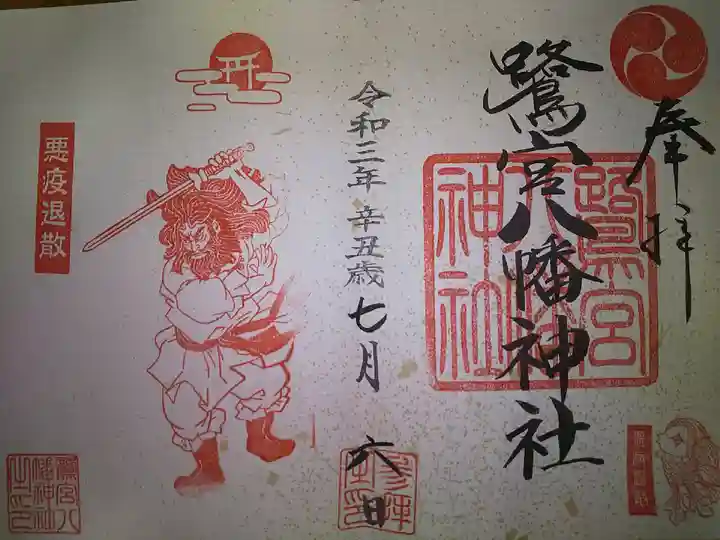 奉拝
鷺宮八幡神社
鷺宮八幡神社
令和三年 辛丑歳 七月 六日
参拝
悪疫退散
鷺宮八幡神社之印